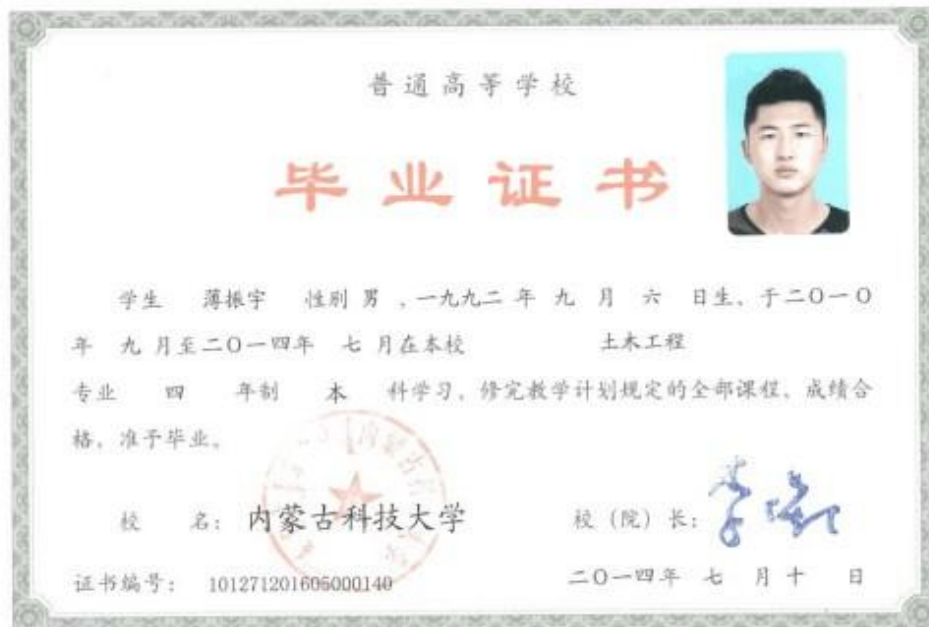 普通高等学校
毕业证书
学生 薄振宇 性别 男 ，一九九二 年 九 月 六 日生、于二〇一〇
年 九 月至二〇一四年 七 月在本校 土木工程
专业 四 年制 本 科学习，修完教学计划规定的全部课程，成绩合
格，准予毕业。
校 名： 内蒙古科技大学 校（院）长：
证书编号： 101271201605000140 二〇一四年 七 月 十 日